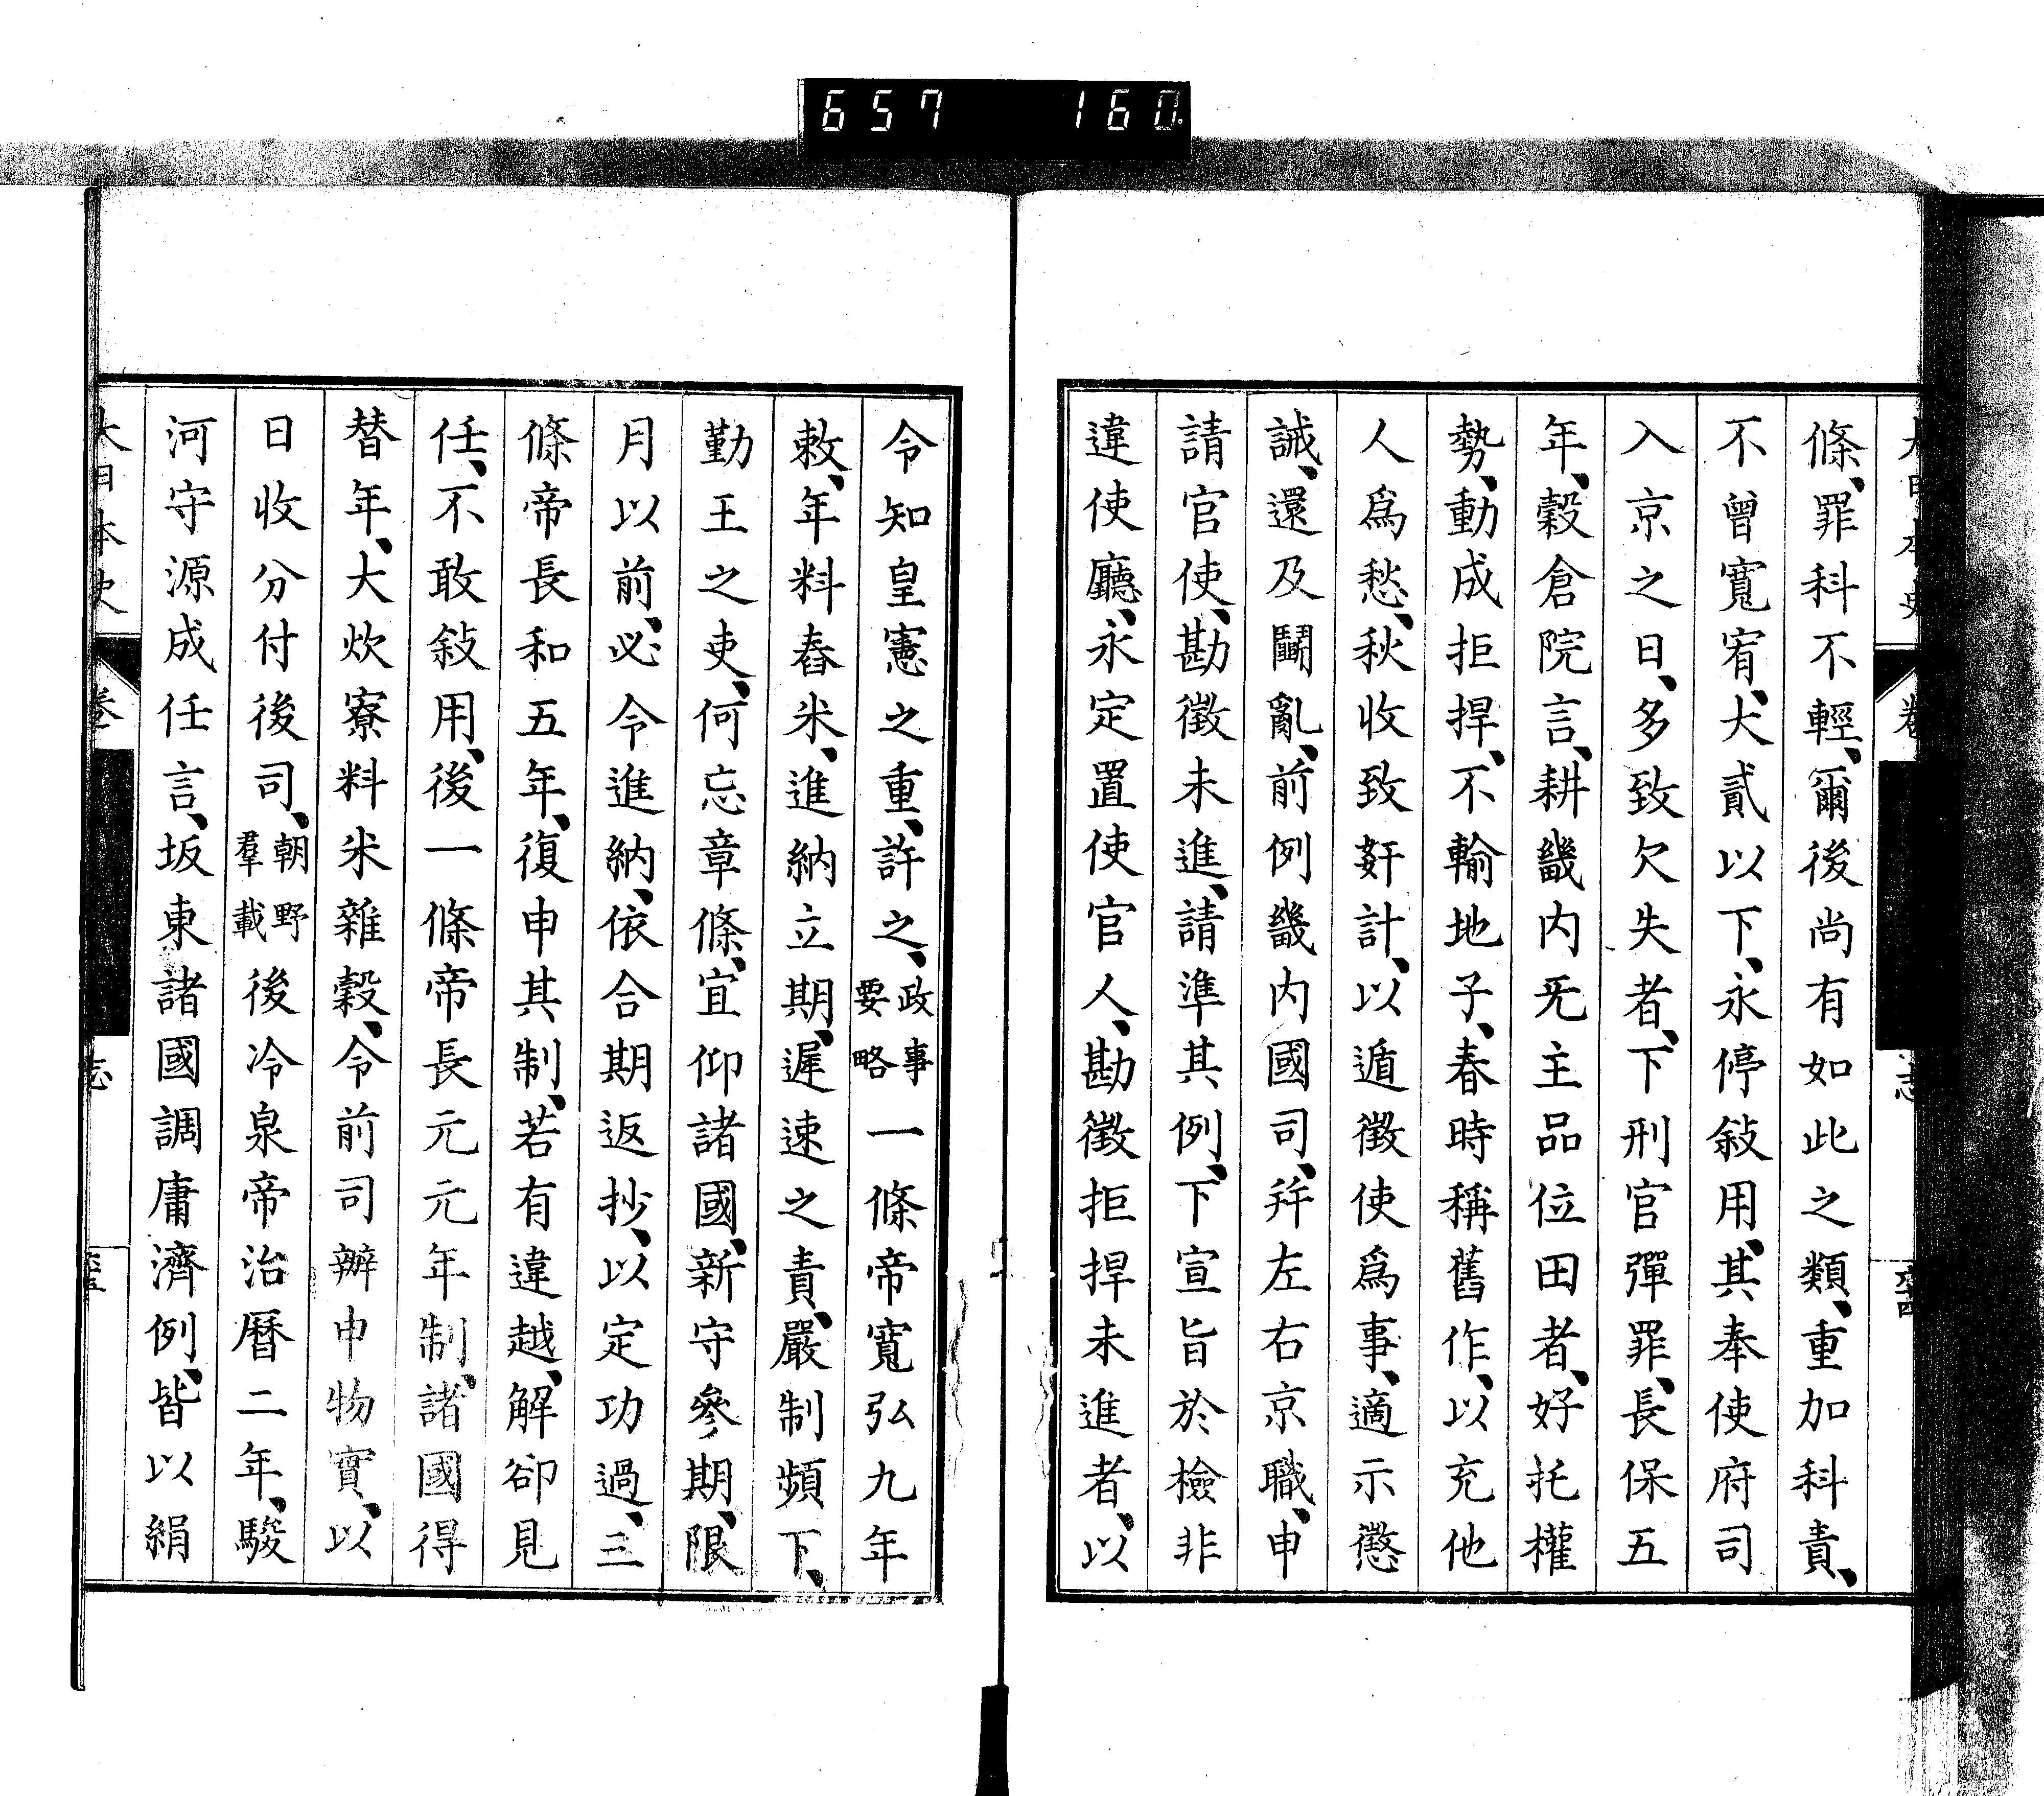 657 160
大日本史 卷 志
條、罪科不輕、爾後尚有如此之類、重加科責、
不曾寬宥、大貳以下、永停敍用、其奉使府司
入京之日、多致欠失者、下刑官彈罪、長保五
年、穀倉院言、耕畿内旡主品位田者、好托權
勢、動成拒捍、不輸地子、春時稱舊作、以充他
人爲愁、秋收致奸計、以遁徵使爲事、適示懲
誡、還及鬪亂、前例畿内國司、幷左右京職、申
請官使、勘徵未進、請準其例、下宣旨於檢非
違使廳、永定置使官人、勘徵拒捍未進者、以
令知皇憲之重、許之、政事要略一條帝寬弘九年
敕、年料舂米、進納立期、遲速之責、嚴制頻下、
勤王之吏、何忘章條、宜仰諸國、新守參期、限
月以前、必令進納、依合期返抄、以定功過、三
條帝長和五年、復申其制、若有違越、解卻見
任、不敢敍用、後一條帝長元元年制、諸國得
替年、大炊寮料米雜穀、令前司辨申物實、以
日收分付後司、朝野羣載後冷泉帝治曆二年、駿
河守源成任言、坂東諸國調庸濟例、皆以絹
大日本史 卷 志